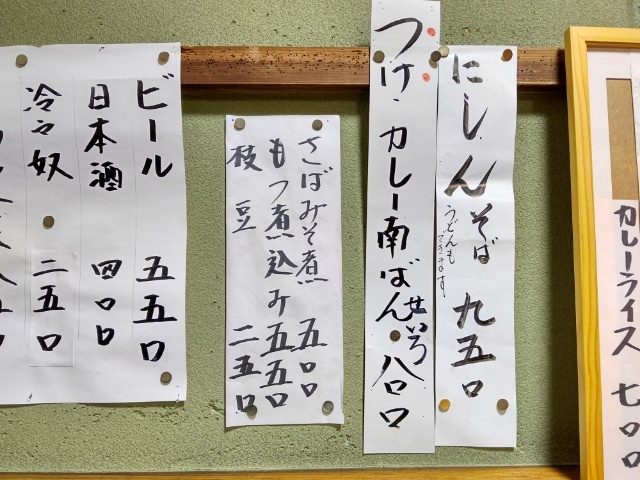 カレーライス 七〇〇
にしんそば 九五〇
うどんもできます
つけ・カレー南ばん 八〇〇
せいろ
さばみそ煮 五〇〇
もつ煮込み 五五〇
枝豆 二五〇
ビール 五五〇
日本酒 四〇〇
冷々奴 二五〇